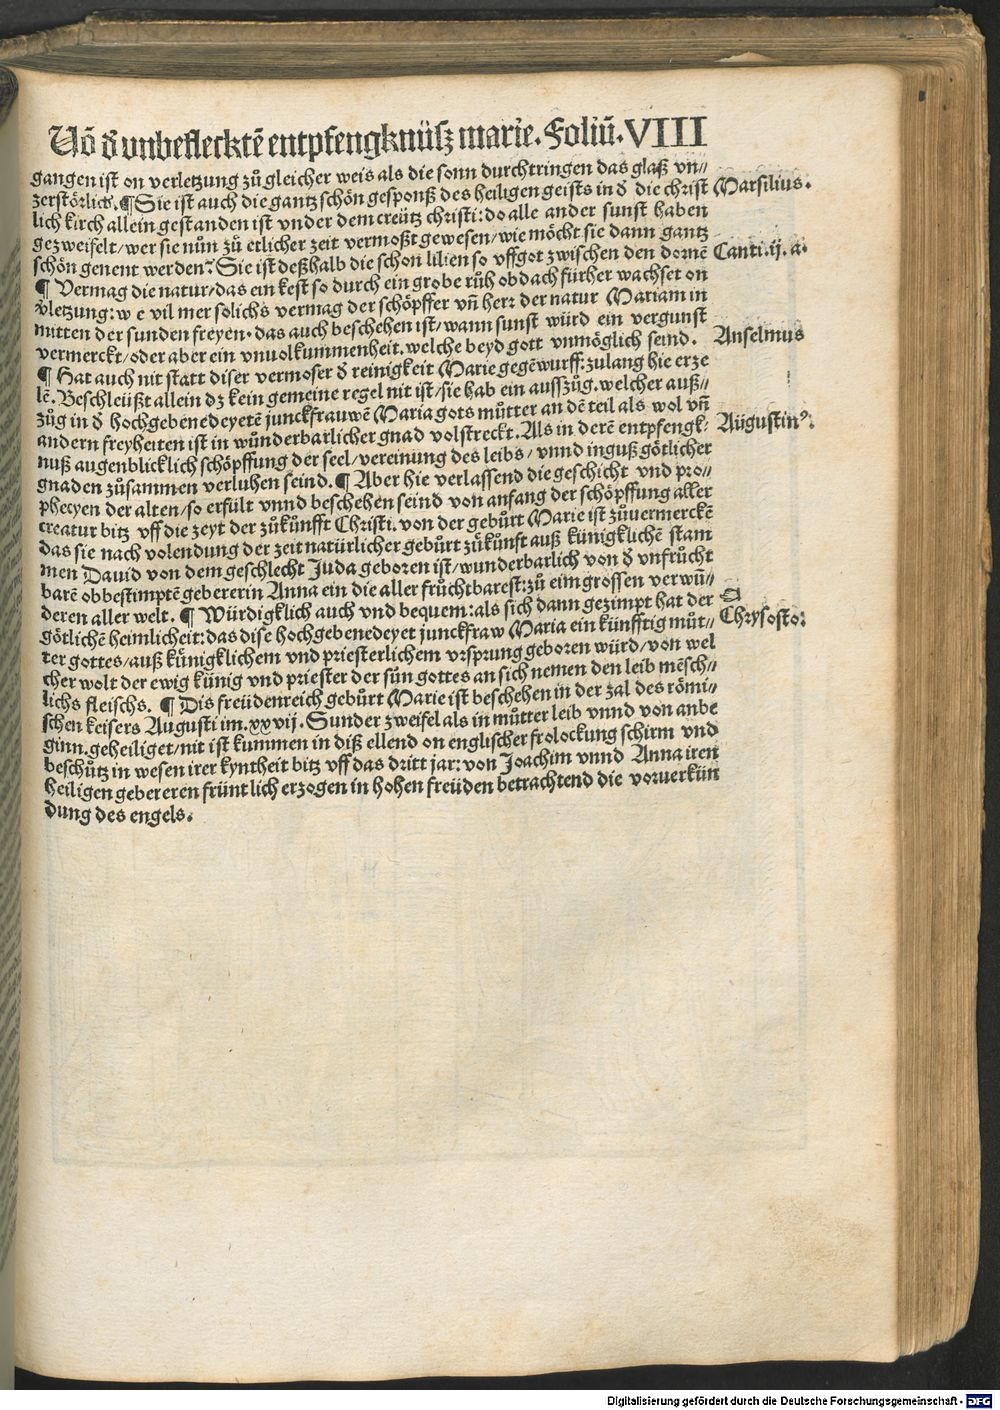 Uõ đ unbeflecktẽ entpfengknüsz marie. Foliũ. VIII
gangen ist on verletzung zů gleicher weis als die sonn durchtringen das glaß vn⸗
zerstörlich. ¶ Sie ist auch die gantz schön gesponß des heiligen geists in đ die christ
Marsilius.
lich kirch allein gestanden ist vnder dem creütz christi: do alle ander sunst haben
gezweifelt/ wer sie nůn zů etlicher zeit vermoßt gewesen/ wie möcht sie dann gantz
schön genent werden? Sie ist deßhalb die schon lilien so vffgot zwischen den dornẽ
Canti. ij. a.
¶ Vermag die natur/ das ein kest so durch ein grobe růh obdach fürher wachset on
v̾letzung: w e vil mer solichs vermag der schöpffer vñ herr der natur Mariam in
mitten der sunden freyen. das auch beschehen ist/ wann sunst würd ein vergunst
vermerckt/ oder aber ein vnuolkummenheit. welche beyd gott vnmöglich seind.
Anselmus
¶ Hat auch nit statt diser vermoser đ reinigkeit Marie gegẽwurff: zulang hie erze
lẽ. Beschleüßt allein dz kein gemeine regel nit ist/ sie hab ein ausszůg. welcher auß⸗
zůg in đ hochgebenedeyetẽ junckfrauwẽ Maria gots můtter an dẽ teil als wol vñ
Augustin⁹.
andern freyheiten ist in wůnderbarlicher gnad volstreckt. Als in derẽ entpfengk⸗
nuß augenblicklich schöpffung der seel/ vereinung des leibs/ vnnd inguß götlicher
gnaden zůsammen verluhen seind. ¶ Aber hie verlassend die geschicht vnd pro⸗
phecyen der alten/ so erfült vnnd beschehen seind von anfang der schöpffung aller
creatur bitz vff die zeyt der zůkůnfft Christi. von der gebůrt Marie ist zůvermerckẽ
das sie nach volendung der zeit natürlicher gebůrt zůkůnft auß künigklichẽ stam
men Dauid von dem geschlecht Juda geboren ist/ wunderbarlich von đ vnfrůcht
barẽ obbestimptẽ gebererin Anna ein die aller frůchtbarest: zů eim grossen verwũ⸗
deren aller welt. ¶ Würdigklich auch vnd bequem: als sich dann gezimpt hat der
Chrysosto:
götlichẽ heimlicheit: das dise hochgebenedeyet junckfraw Maria ein künfftig můt⸗
ter gottes/ auß künigklichem vnd priesterlichem vrsprung geboren würd/ von wel
cher wolt der ewig künig vnd priester der sůn gottes an sich nemen den leib mẽsch⸗
lichs fleischs. ¶ Dis freüdenreich gebůrt Marie ist beschehen in der zal des römi⸗
schen keisers Augusti im. xxvij. Sunder zweifel als in můtter leib vnnd von anbe
ginn. geheiliget/ nit ist kummen in diß ellend on englischer frolockung schirm vnd
beschůtz in wesen irer kyntheit bitz vff das dritt jar: von Joachim vnnd Anna iren
heiligen gebereren früntlich erzogen in hohen freüden betrachtend die vorverkün
dung des engels.
Digitalisierung gefördert durch die Deutsche Forschungsgemeinschaft - DFG